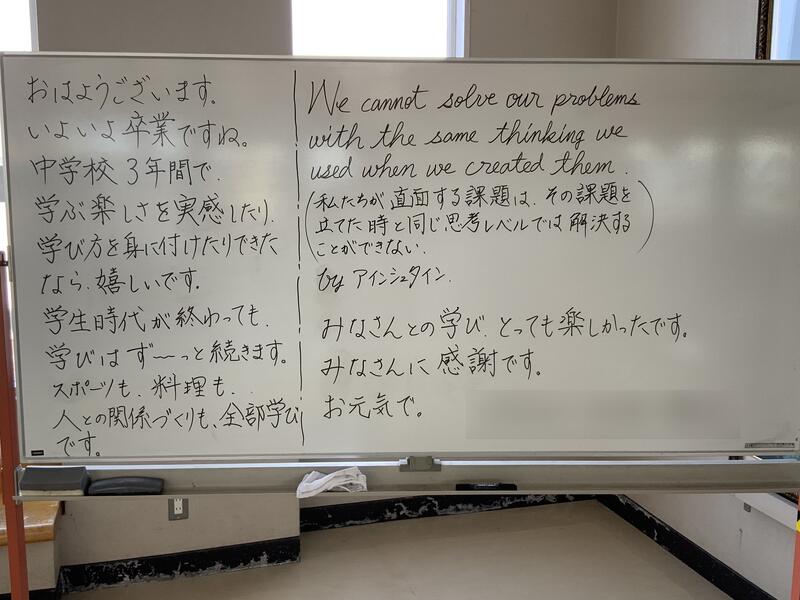 おはようございます。
いよいよ卒業ですね。
中学校3年間で、
学ぶ楽しさを実感したり、
学び方を身に付けたりできた
なら、嬉しいです。
学生時代が終わっても、
学びはず〜っと続きます。
スポーツも、料理も、、
人との関係づくりも、全部学び
です。
We cannot solve our problems
with the same thinking we
used when we created them.
(私たちが直面する課題は、その課題を
立てた時と同じ思考レベルでは解決する
ことができない)
by アインシュタイン.
みなさんとの学び、とっても楽しかったです。
みなさんに感謝です。
お元気で。